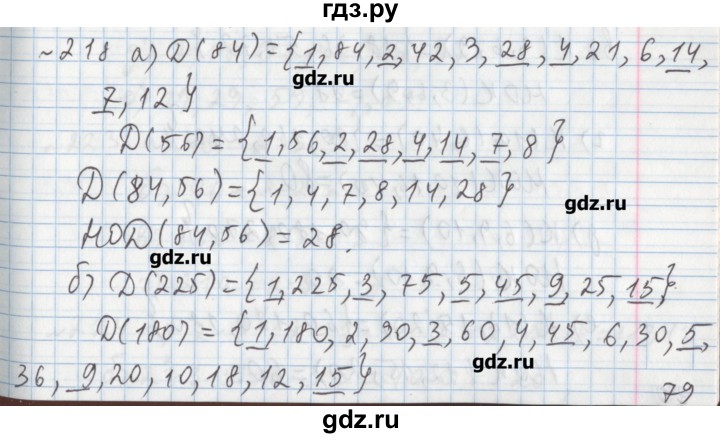 гдз.ру
~218 а) D(84)={1,84,2,42,3,28,4,21,6,14,
gdz.ru
7,12}
D(56)={1,56,2,28,4,14,7,8}
D(84,56)={1,4,7,8,14,28}
НОD(84,56)=28.
gdz.ru
б) D(225)={1,225,3,75,5,45,9,25,15}
D(180)={1,180,2,90,3,60,4,45,6,30,5,
gdz.ru
36,9,20,10,18,12,15}
79
gdz.ru